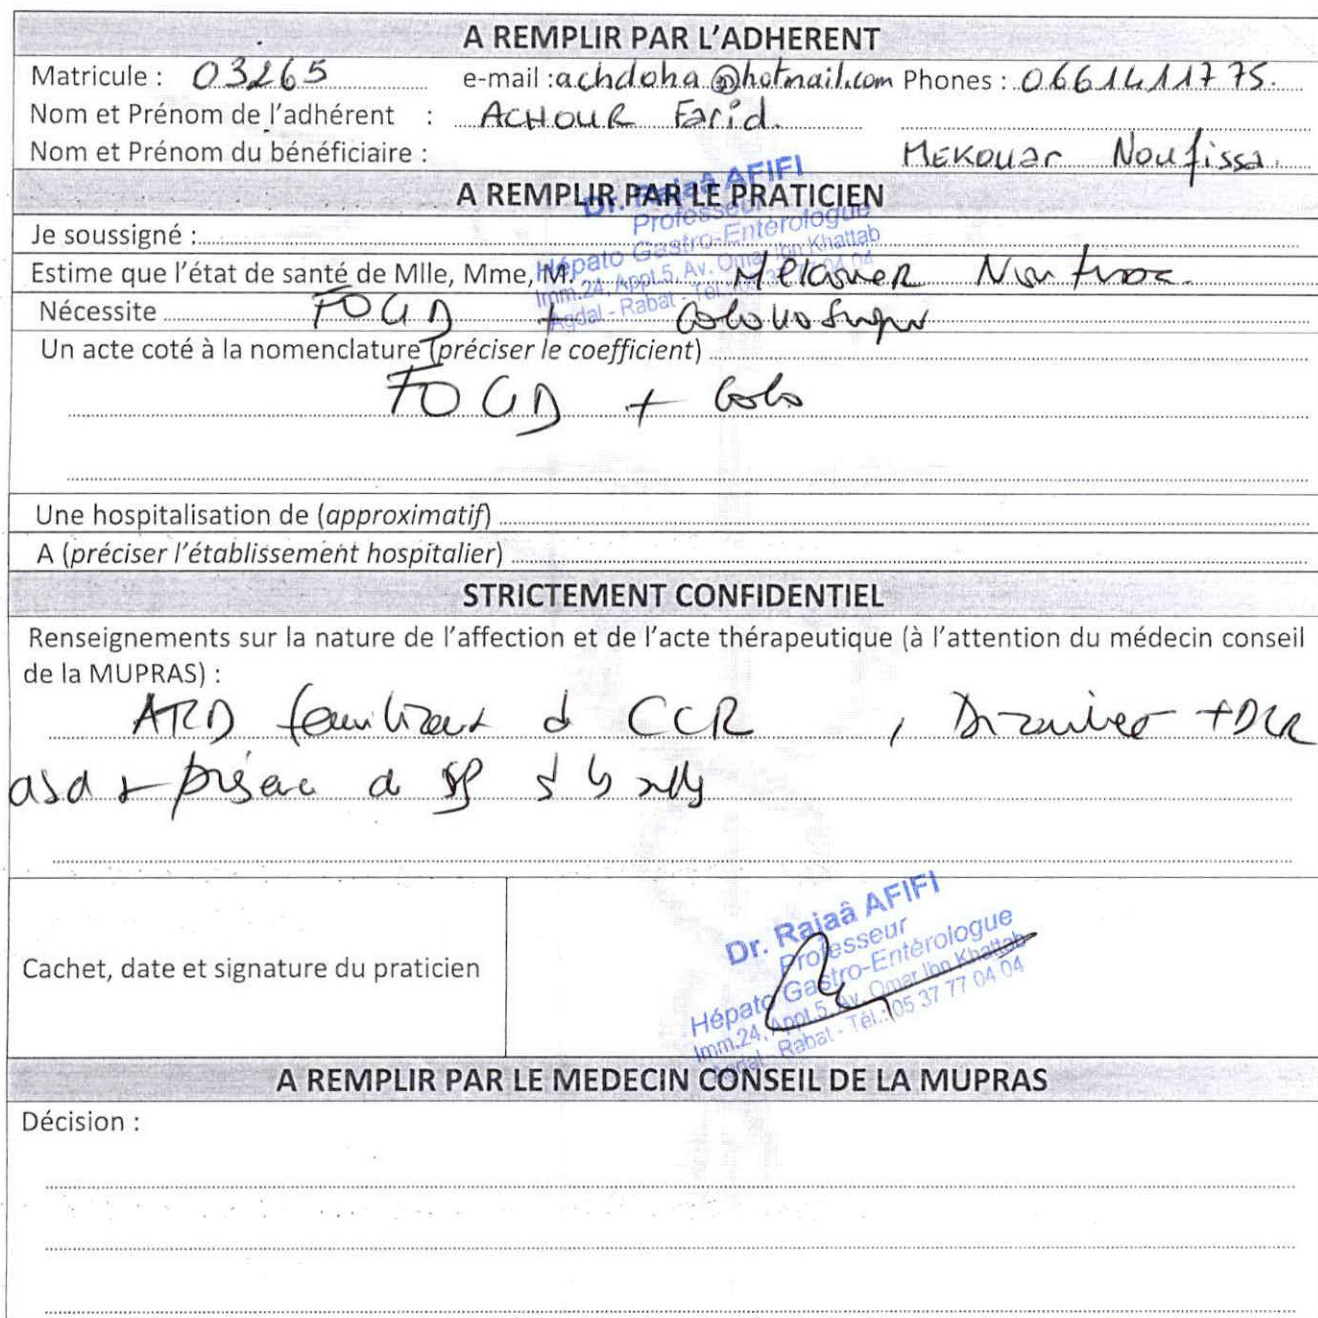 A REMPLIR PAR L'ADHERENT
Matricule : 03265 e-mail : achdoha@hotmail.com Phones : 0661411775.
Nom et Prénom de l'adhérent : ACHOUR Farid.
Nom et Prénom du bénéficiaire : MEKOUAR Noufissa.
A REMPLIR PAR LE PRATICIEN
Dr. Rajaâ AFIFI
Professeur
Hépato Gastro-Entérologue
Imm.24, Appt.5, Av. Omar Ibn Khattab
Agdal - Rabat - Tél.: 05 37 77 04 04
Je soussigné :
Estime que l'état de santé de Mlle, Mme, M.
Nécessite FOGD +
Un acte coté à la nomenclature (préciser le coefficient)
FOGD + Colo
Une hospitalisation de (approximatif)
A (préciser l'établissement hospitalier)
STRICTEMENT CONFIDENTIEL
Renseignements sur la nature de l'affection et de l'acte thérapeutique (à l'attention du médecin conseil
de la MUPRAS) :
ATCD CCR ,
Cachet, date et signature du praticien
Dr. Rajaâ AFIFI
Professeur
Hépato Gastro-Entérologue
Imm.24, Appt.5, Av. Omar Ibn Khattab
Agdal - Rabat - Tél.: 05 37 77 04 04
A REMPLIR PAR LE MEDECIN CONSEIL DE LA MUPRAS
Décision :